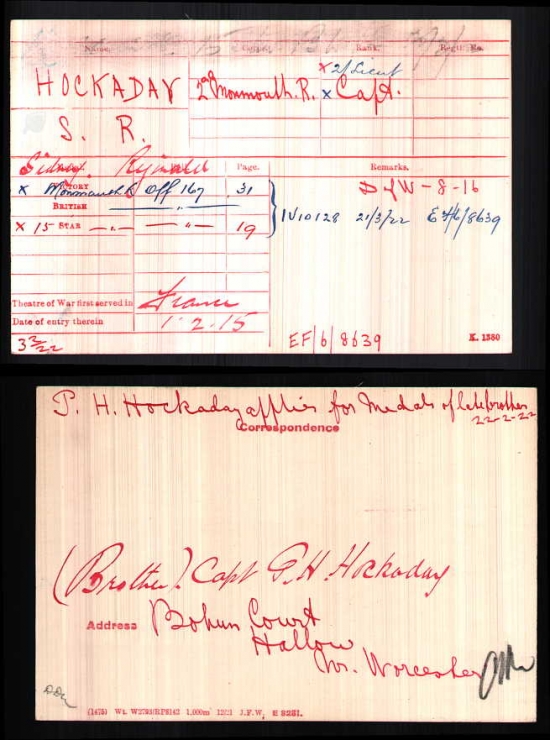 Name. Corps. Rank. Regtl. No.
x 2/Lieut
HOCKADAY 2nd Monmouth. R. x Capt.
S. R.
Sidney Reginald Page. Remarks.
x VICTORY Monmouth R Off 167 31 D of W - 8 - 16
BRITISH — " — IV/10128 21/3/22 EF/6/8639
x 15 STAR — " — — " — 19
Theatre of War first served in France
Date of entry therein 1·2·15
EF/6/8639 K. 1380
P. H. Hockaday applies for Medals of late brother
22-2-22
Correspondence
(Brother). Capt P.H. Hockaday
Address Bohun Court
Hallow
Nr. Worcester
(1475) Wt. 1,000m 12/21 J.F.W. E 9281.